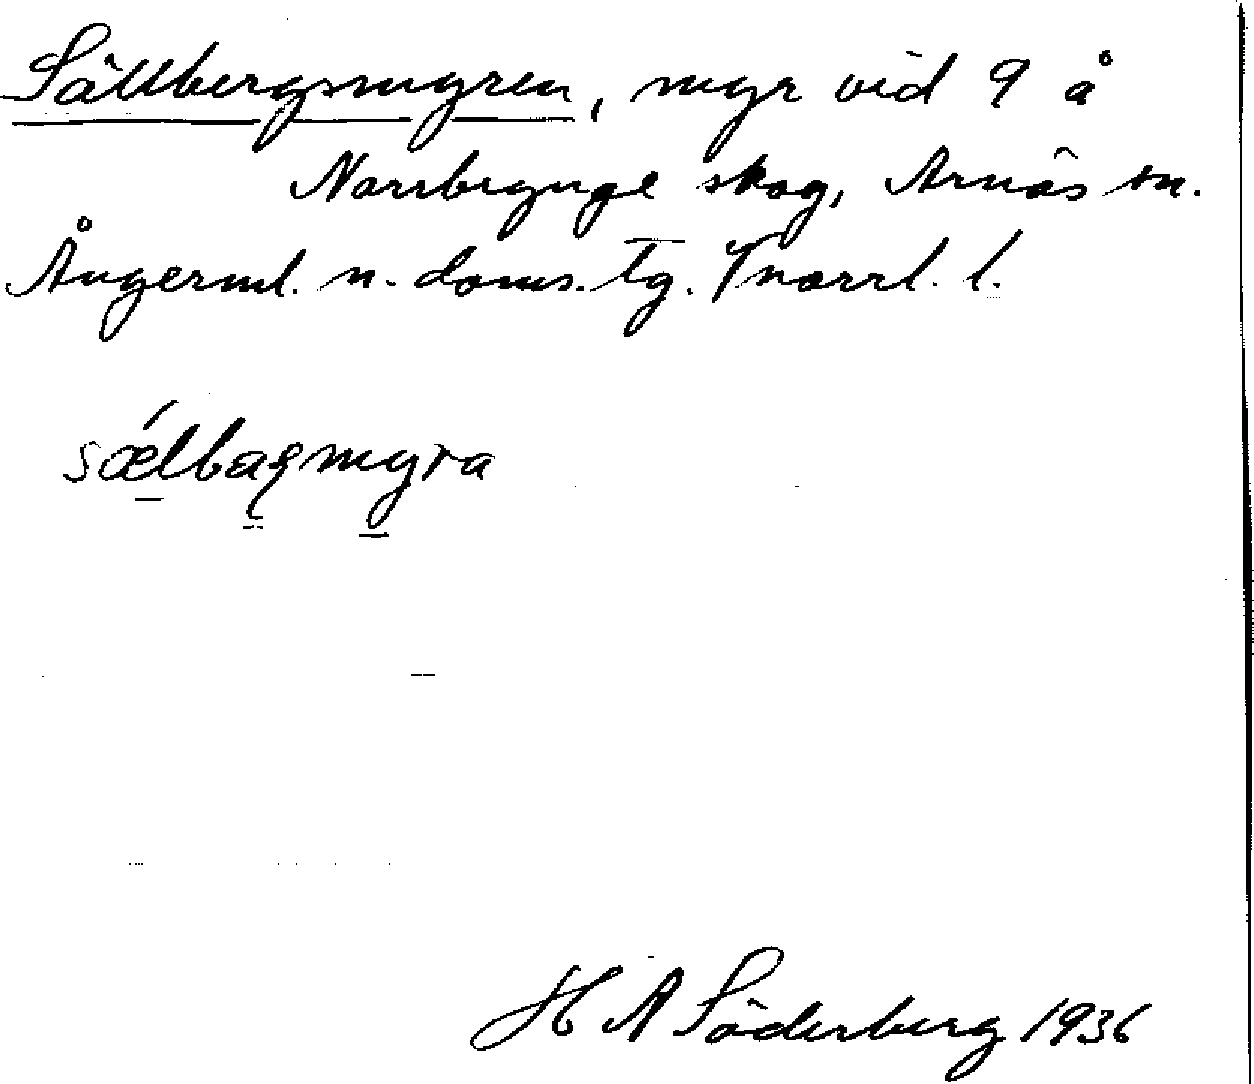 Sällbergsmyren, myr vid 9 å
Norrbygge skog, Arnäs sn.
Ångerml. n. doms. tg. Vnorrl. l.
sǽlbaqmyra
H A Söderberg 1936